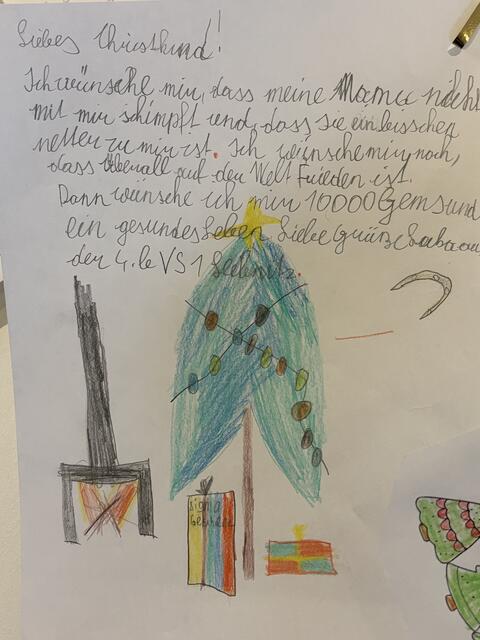 Liebes Christkind!
Ich wünsche mir, dass meine Mama nicht
mit mir schimpft und, dass sie ein bisschen
netter zu mir ist. Ich wünsche mir noch,
dass Überall auf der Welt Frieden ist.
Dann wünsche ich mir 10000 Gems und
ein gesundes Leben. Liebe Grüße
der 4. VS 1
sigma